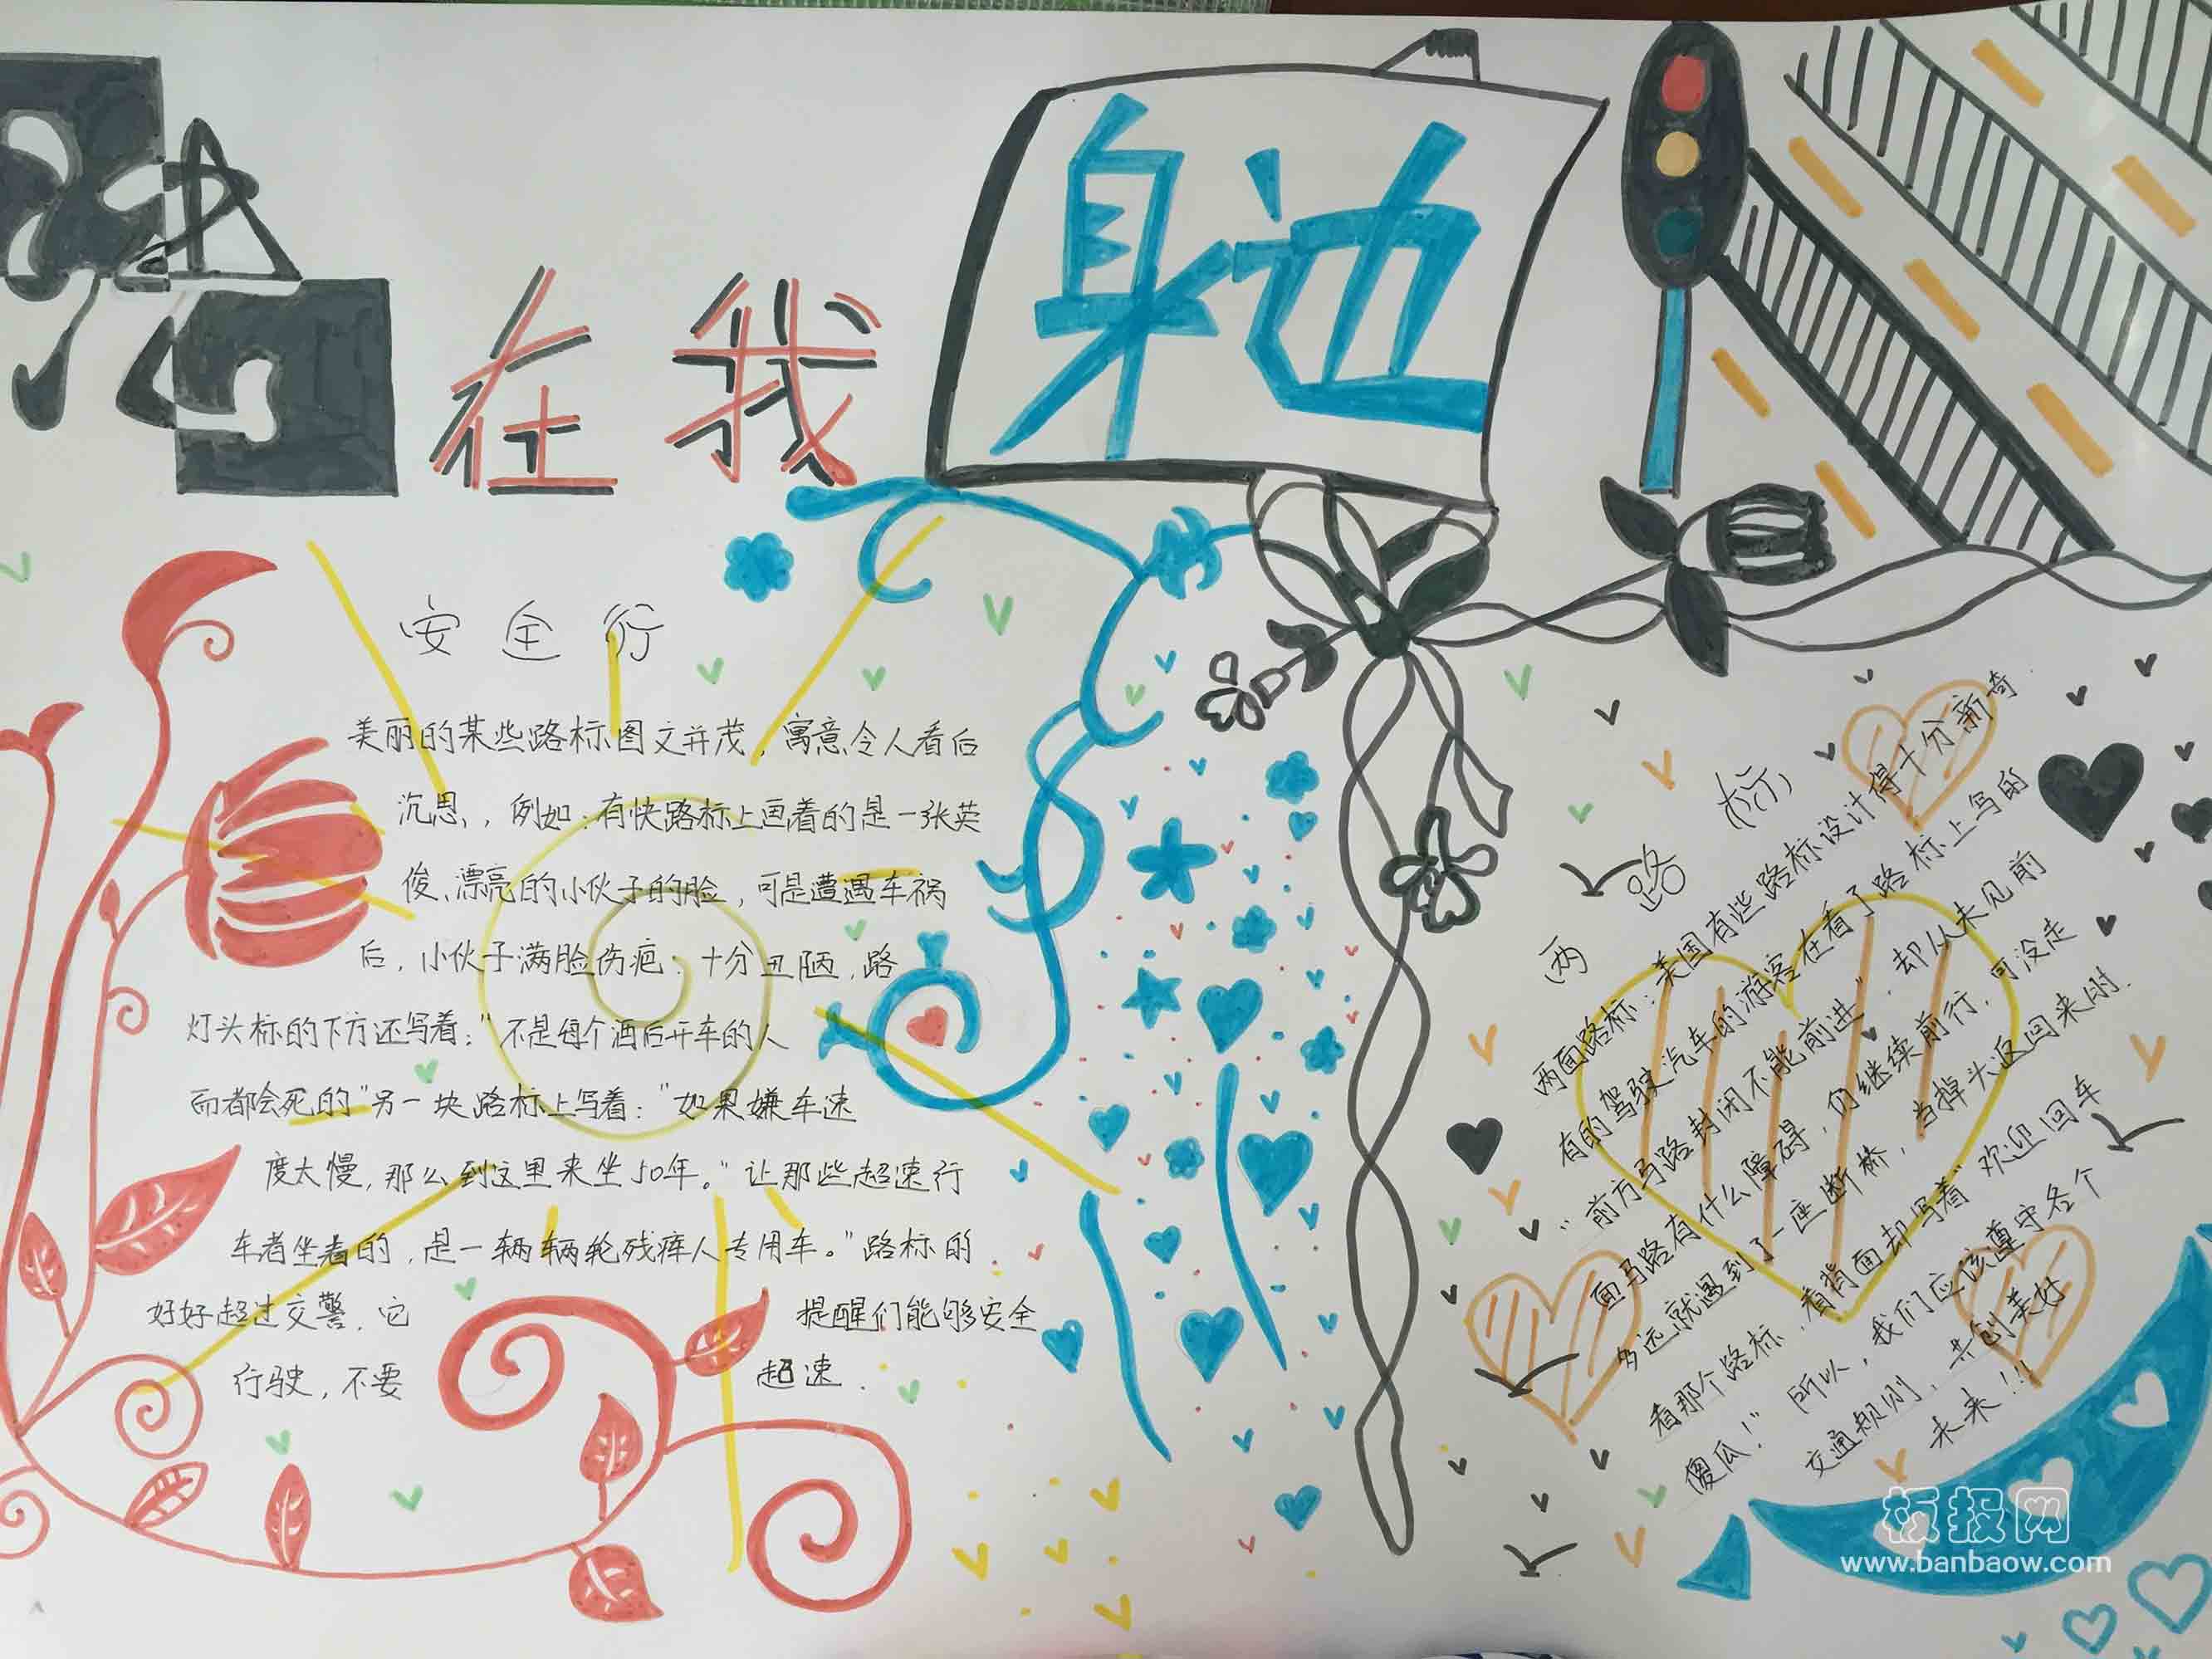 法在我身边
安全行
美丽的某些路标图文并茂，寓意令人看后
沉思，例如：有快路标上画着的是一张英
俊、漂亮的小伙子的脸，可是遭遇车祸
后，小伙子满脸伤疤：十分丑陋，路
灯头标的下方还写着："不是每个酒后开车的人
而都会死的"另一块路标上写着："如果嫌车速
度太慢，那么到这里来坐50年。"让那些超速行
车者坐着的，是一辆辆轮残疾人专用车。"路标的
好好超过交警，它 提醒们能够安全
行驶，不要 超速．
两路标
两面路标：美国有些路标设计得十分新奇．
有的驾驶汽车的游客在看了路标上写的
"前方马路封闭不能前进"，却从未见前
面马路有什么障碍，仍继续前行，可没走
多远就遇到了一座断桥，当掉头返回来时．
看那个路标，看背面却写着"欢迎回车
傻瓜！" 所以，我们应该遵守各个
交通规则，共创美好
未来!!!
板报网
www.banbaow.com